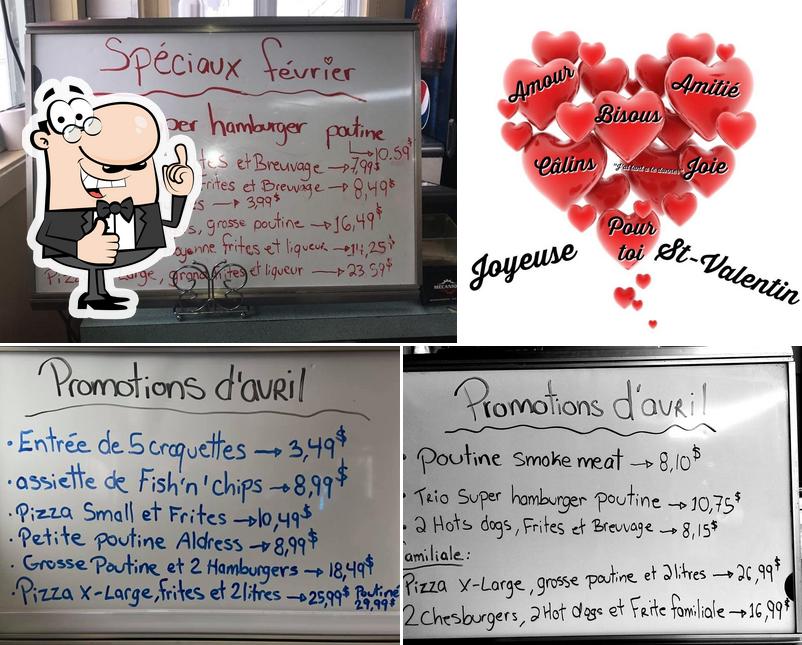 Spéciaux février
per hamburger poutine
→10.59$
tes et Breuvage →7,99$
frites et Breuvage → 8,49$
→ 3,99$
s, grosse poutine →16,49$
oyenne frites et liqueur →14,25$
Pizz large, grand frites et liqueur →23.59$
Amour
Amitié
Bisous
Câlins
Joie
Pour
toi
Joyeuse St-Valentin
Promotions d'avril
• Entrée de 5 croquettes → 3,49$
• assiette de Fish'n'chips →8,99$
• Pizza Small et Frites →10,49$
• Petite poutine Aldress → 8,99$
• Grosse Poutine et 2 Hamburgers → 18,49$
• Pizza X-Large, frites et 2 litres →25,99$ Poutine
29,99$
Promotions d'avril
• Poutine smoke meat → 8,10$
• Trio Super hamburger poutine → 10,75$
• 2 Hots dogs, Frites et Breuvage → 8,15$
amiliale:
Pizza X-Large, grosse poutine et 2 litres →26,99$
2 Chesburgers, 2 Hot dogs et Frite familiale →16,99$